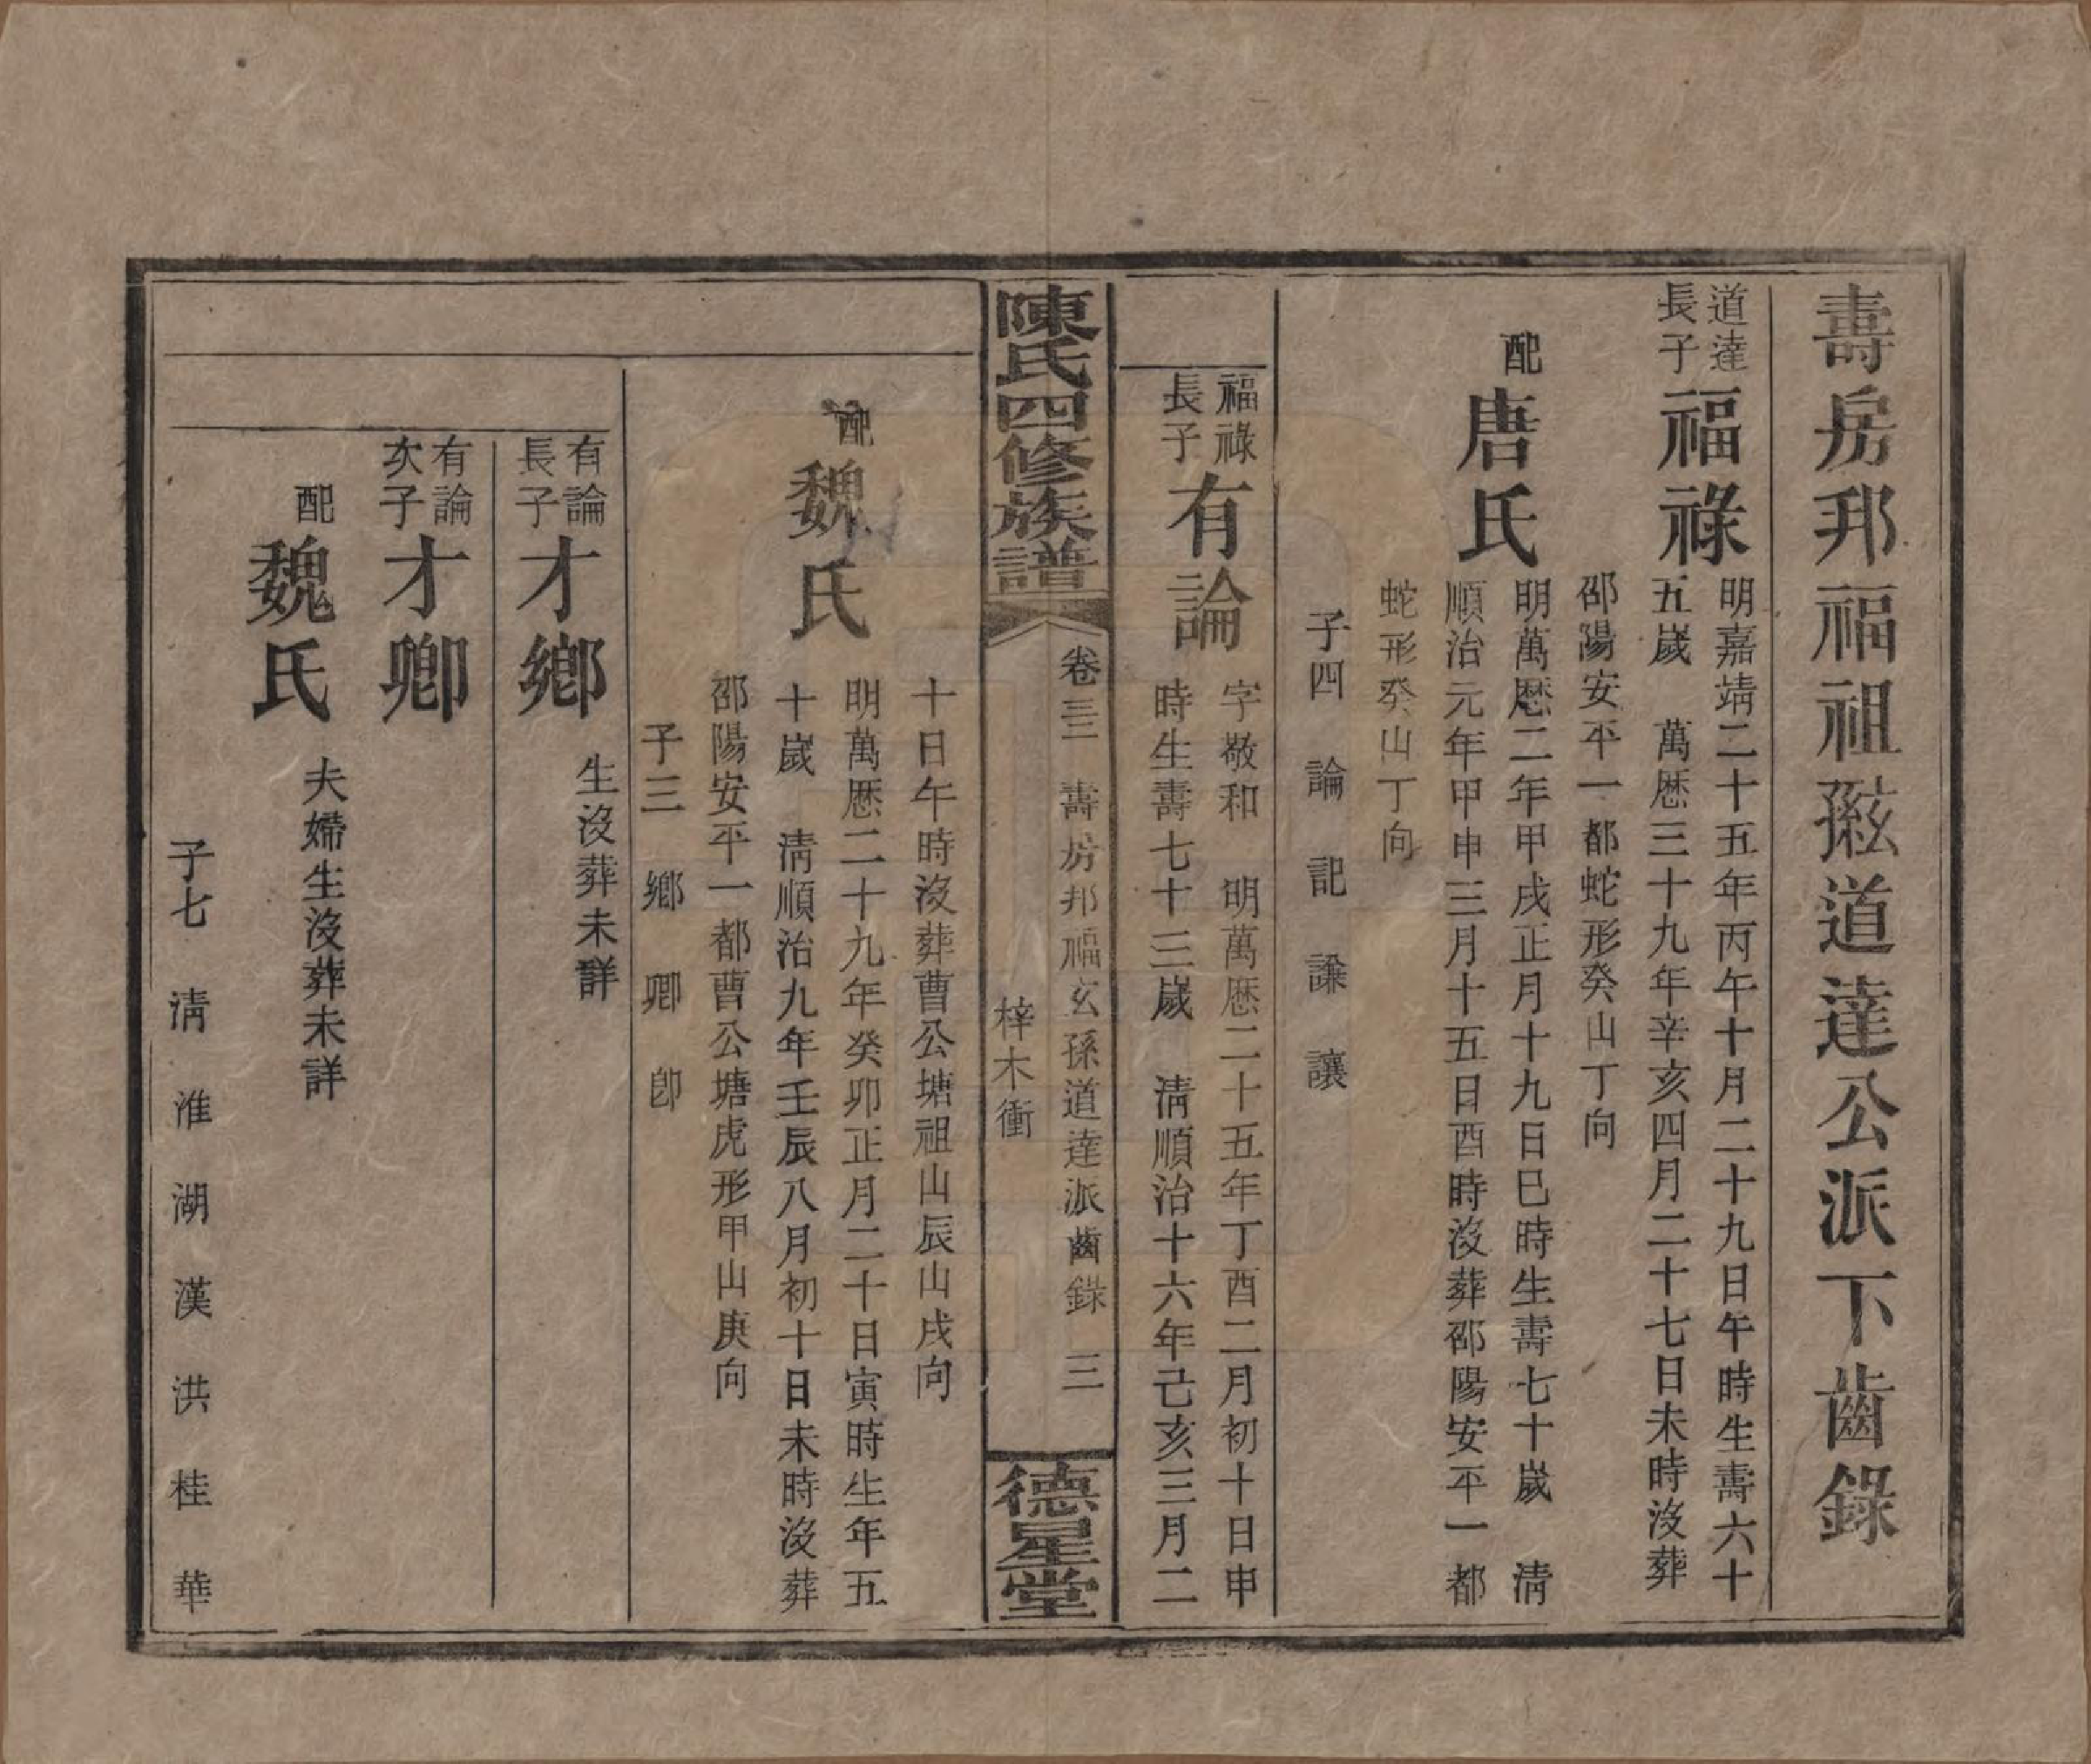 壽房邦福祖𤣥孫道達公派下齒錄
道達
長子
福祿
明嘉靖二十五年丙午十月二十九日午時生壽六十
五歲　萬歷三十九年辛亥四月二十七日未時沒葬
邵陽安平一都蛇形癸山丁向
配
唐氏
明萬歷二年甲戌正月十九日巳時生壽七十歲　清
順治元年甲申三月十五日酉時沒葬邵陽安平一都
蛇形癸山丁向
子四　論　記　謙　讓
福祿
長子
有論
字敬和　明萬歷二十五年丁酉二月初十日申
時生壽七十三歲　清順治十六年己亥三月二
陳氏四修族譜
卷三三　壽房邦福玄孫道達派齒錄　三
梓木衝
德星堂
十日午時沒葬曹公塘祖山辰山戌向
配
魏氏
明萬歷二十九年癸卯正月二十日寅時生年五
十歲　清順治九年壬辰八月初十日未時沒葬
邵陽安平一都曹公塘虎形甲山庚向
子三　鄉　卿　卽
有論
長子
才鄉
生沒葬未詳
有論
次子
才卿
配
魏氏
夫婦生沒葬未詳
子七　清　淮　湖　漢　洪　桂　華